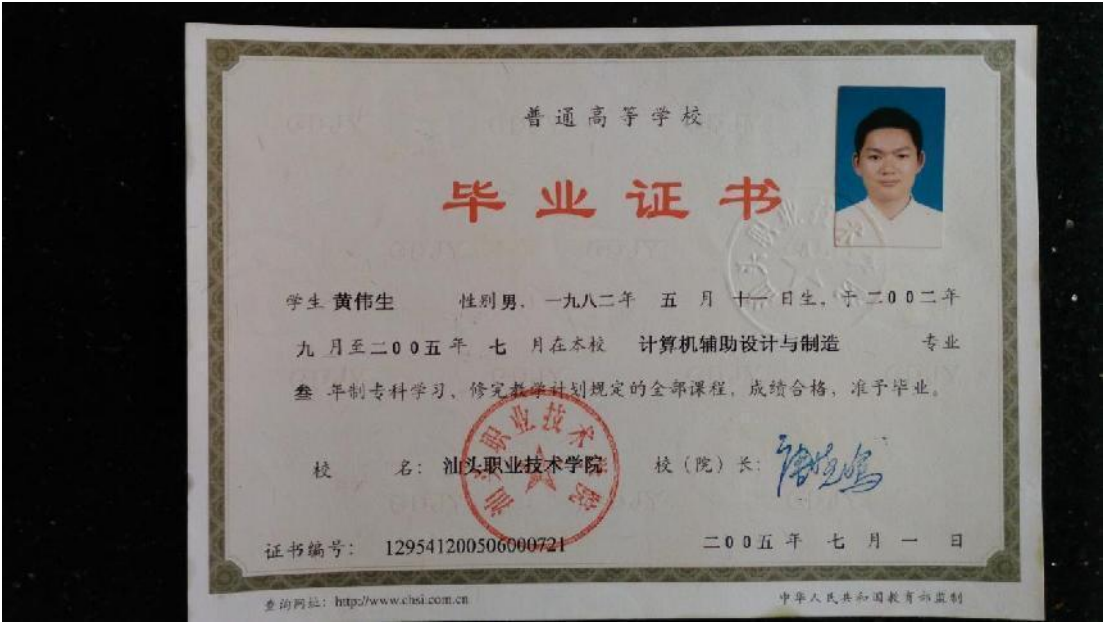 普通高等学校
毕业证书
学生 黄伟生 性别 男, 一九八二年 五 月 十一 日生, 于二00二年
九 月至二00五年 七 月在本校 计算机辅助设计与制造 专业
叁 年制专科学习, 修完教学计划规定的全部课程, 成绩合格, 准予毕业。
校 名: 汕头职业技术学院 校(院)长:
汕头职业技术学院
证书编号: 129541200506000721 二00五年 七 月 一 日
查询网址: http://www.chsi.com.cn 中华人民共和国教育部监制